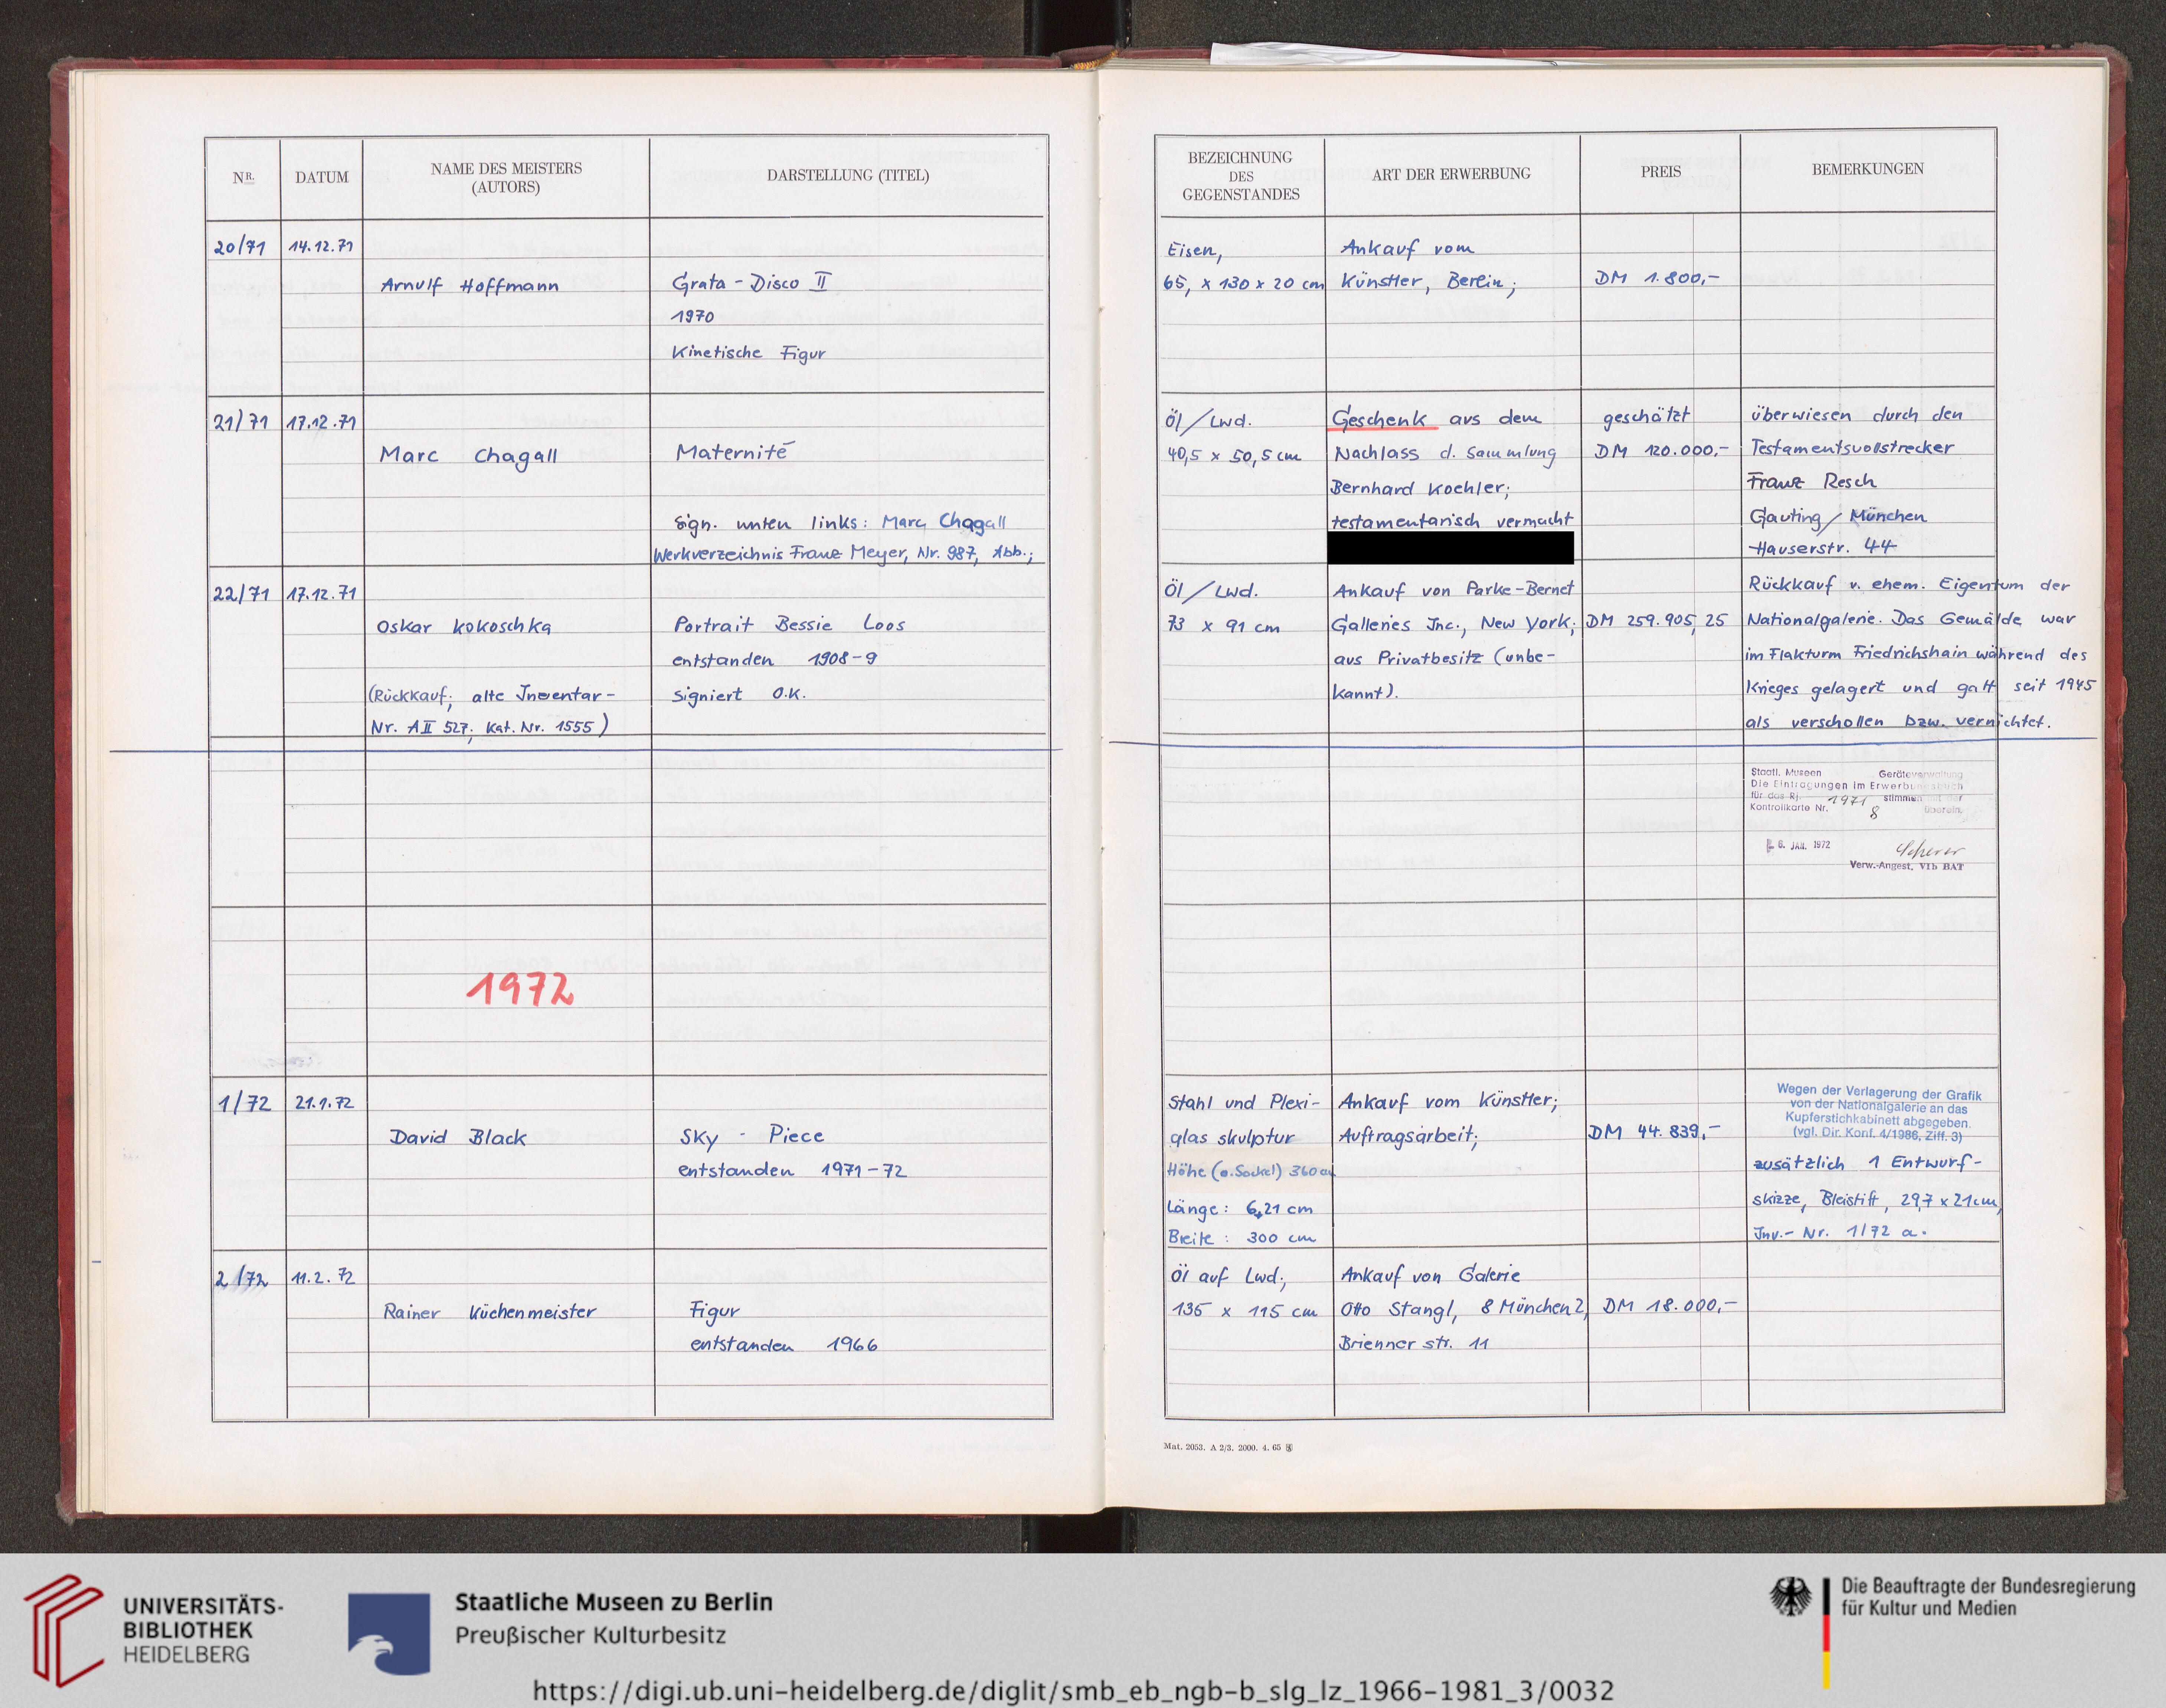 NR.
DATUM
NAME DES MEISTERS
(AUTORS)
DARSTELLUNG (TITEL)
BEZEICHNUNG
DES
GEGENSTANDES
ART DER ERWERBUNG
PREIS
BEMERKUNGEN
20/71 14.12.71
Arnulf Hoffmann
Grata - Disco II
1970
Kinetische Figur
Eisen,
65, x 130 x 20 cm
Ankauf vom
Künstler, Berlin;
DM 1.800,-
21/71 17.12.71
Marc Chagall
Maternité
Sign. unten links: Marc Chagall
Werkverzeichnis Franz Meyer, Nr. 987, Abb.;
Öl / Lwd.
40,5 x 50,5 cm
Geschenk aus dem
Nachlass d. Sammlung
Bernhard Koehler;
testamentarisch vermacht
geschätzt
DM 120.000,-
überwiesen durch den
Testamentsvollstrecker
Franz Resch
Gauting / München
Hauserstr. 44
22/71 17.12.71
Oskar Kokoschka
(Rückkauf; alte Inventar-
Nr. A II 527; Kat. Nr. 1555)
Portrait Bessie Loos
entstanden 1908-9
signiert O.K.
Öl / Lwd.
73 x 91 cm
Ankauf von Parke-Bernet
Galleries Inc., New York;
aus Privatbesitz (unbe-
kannt).
DM 259.905,25
Rückkauf v. ehem. Eigentum der
Nationalgalerie. Das Gemälde war
im Flakturm Friedrichshain während des
Krieges gelagert und galt seit 1945
als verschollen bzw. vernichtet.
Staatl. Museen Geräteverwaltung
Die Eintragungen im Erwerbungsbuch
für das Rj. 1971 stimmen mit der
Kontrollkarte Nr. 8 überein.
6. JAN. 1972
Scherer
Verw.-Angest. VIb BAT
1972
1/72 21.1.72
David Black
Sky - Piece
entstanden 1971-72
Stahl und Plexi-
glas skulptur
Höhe (o. Sockel) 360 cm
Länge: 6,21 cm
Breite: 300 cm
Ankauf vom Künstler;
Auftragsarbeit;
DM 44.839,-
Wegen der Verlagerung der Grafik
von der Nationalgalerie an das
Kupferstichkabinett abgegeben.
(vgl. Dir. Konf. 4/1986, Ziff. 3)
zusätzlich 1 Entwurf-
skizze, Bleistift, 29,7 x 21 cm,
Inv.- Nr. 1/72 a.
2/72 11.2.72
Rainer Küchenmeister
Figur
entstanden 1966
Öl auf Lwd;
135 x 115 cm
Ankauf von Galerie
Otto Stangl, 8 München 2,
Brienner str. 11
DM 18.000,-
Mat. 2053. A 2/3. 2000. 4. 65
UNIVERSITÄTS-
BIBLIOTHEK
HEIDELBERG
Staatliche Museen zu Berlin
Preußischer Kulturbesitz
Die Beauftragte der Bundesregierung
für Kultur und Medien
https://digi.ub.uni-heidelberg.de/diglit/smb_eb_ngb-b_slg_lz_1966-1981_3/0032